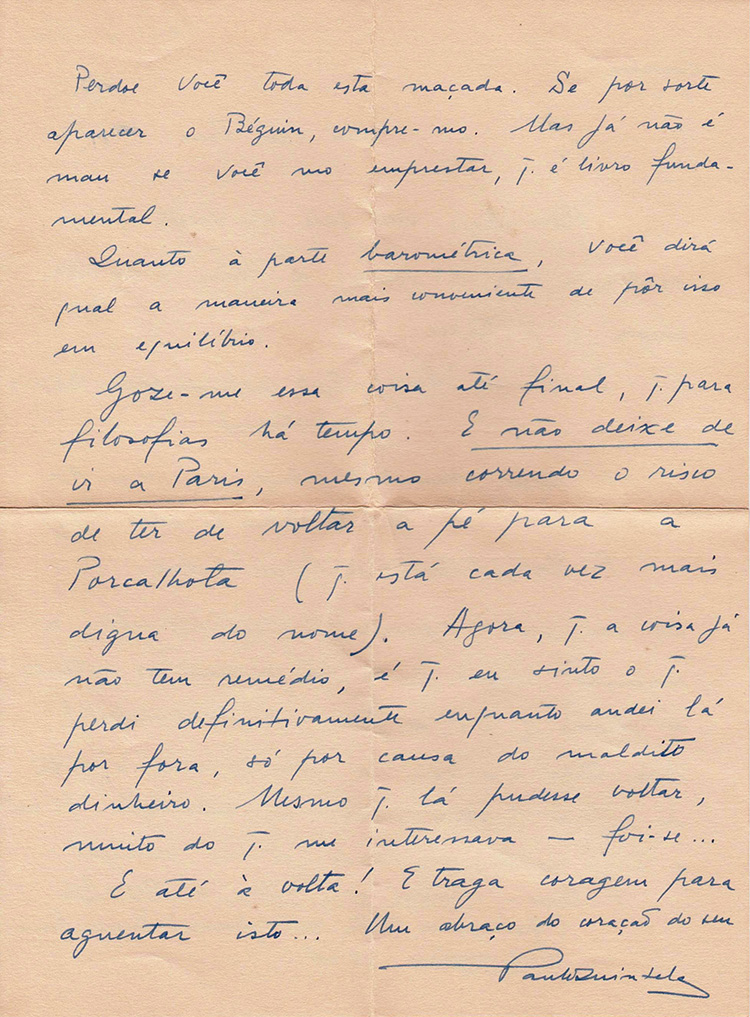 Perdoe Você toda esta maçada. Se por sorte
aparecer o Béguin, compre-mo. Mas já não é
mau se você mo emprestar, q. é livro funda-
mental.
Quanto à parte barométrica, você dirá
qual a maneira mais conveniente de pôr isso
em equilíbrio.
Goze-me essa coisa até final, q. para
filosofias há tempo. E não deixe de
ir a Paris, mesmo correndo o risco
de ter de voltar a pé para a
Porcalhota (q. está cada vez mais
digna do nome). Agora, q. a coisa já
não tem remédio, é q. eu sinto o q.
perdi definitivamente enquanto andei lá
por fora, só por causa do maldito
dinheiro. Mesmo q. lá pudesse voltar,
muito do q. me interessava — foi-se...
E até à volta! E traga coragem para
aguentar isto... Um abraço do coração do seu
Paulo Quintela